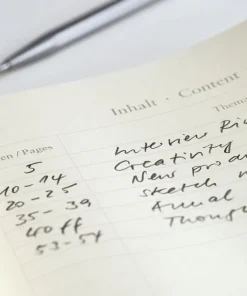 Inhalt · Content
en / Pages Thema
5 Interview Ric
10-14 Creativity
20-25 New prod
35-39 Sketch
40 ff Annual
53-54 Though